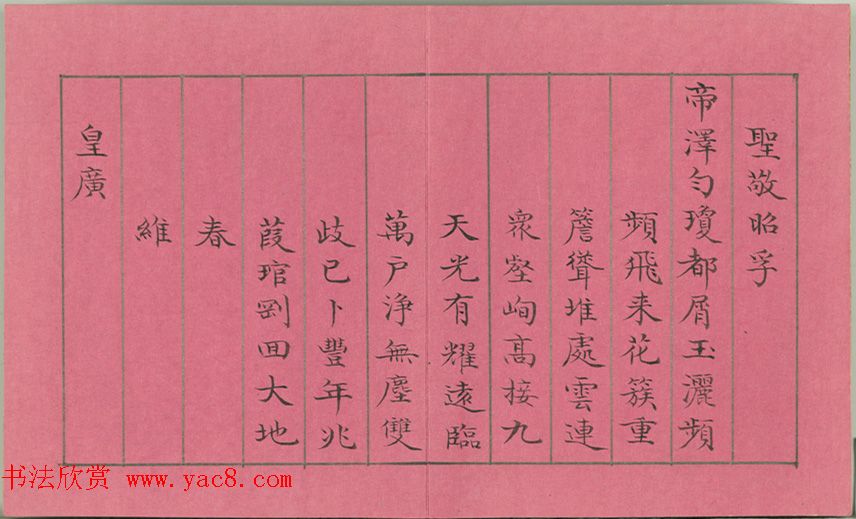 聖敬昭孚
帝澤勻瓊都屑玉灑頻
頻飛来花簇重
簷聳堆處雲連
衆壑峋髙接九
天光有耀遠臨
萬戸浄無塵雙
歧已卜豐年兆
葭琯劉回大地
春
維
皇廣
书法欣赏 www.yac8.com